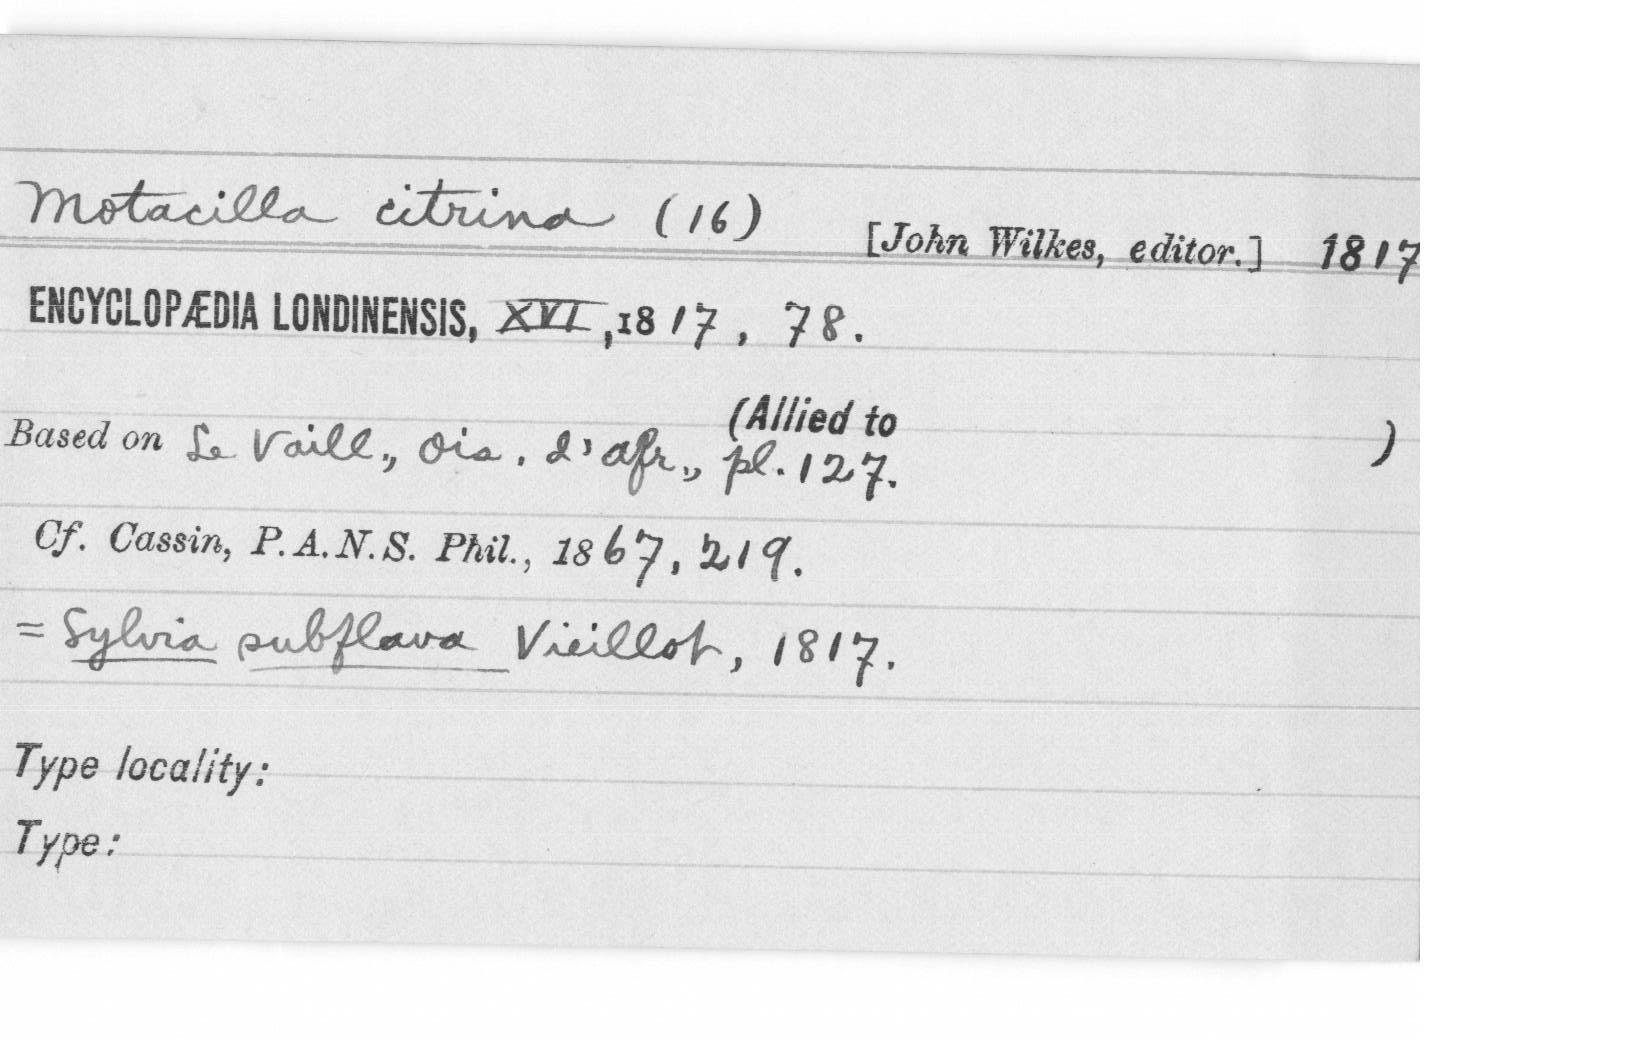 Motacilla citrina (16) [John Wilkes, editor.] 1817
ENCYCLOPÆDIA LONDINENSIS, XVI, 1817, 78.
(Allied to )
Based on Le Vaill., Ois. d'afr., pl. 127.
Cf. Cassin, P.A.N.S. Phil., 1867, 219.
= Sylvia subflava Vieillot, 1817.
Type locality:
Type: